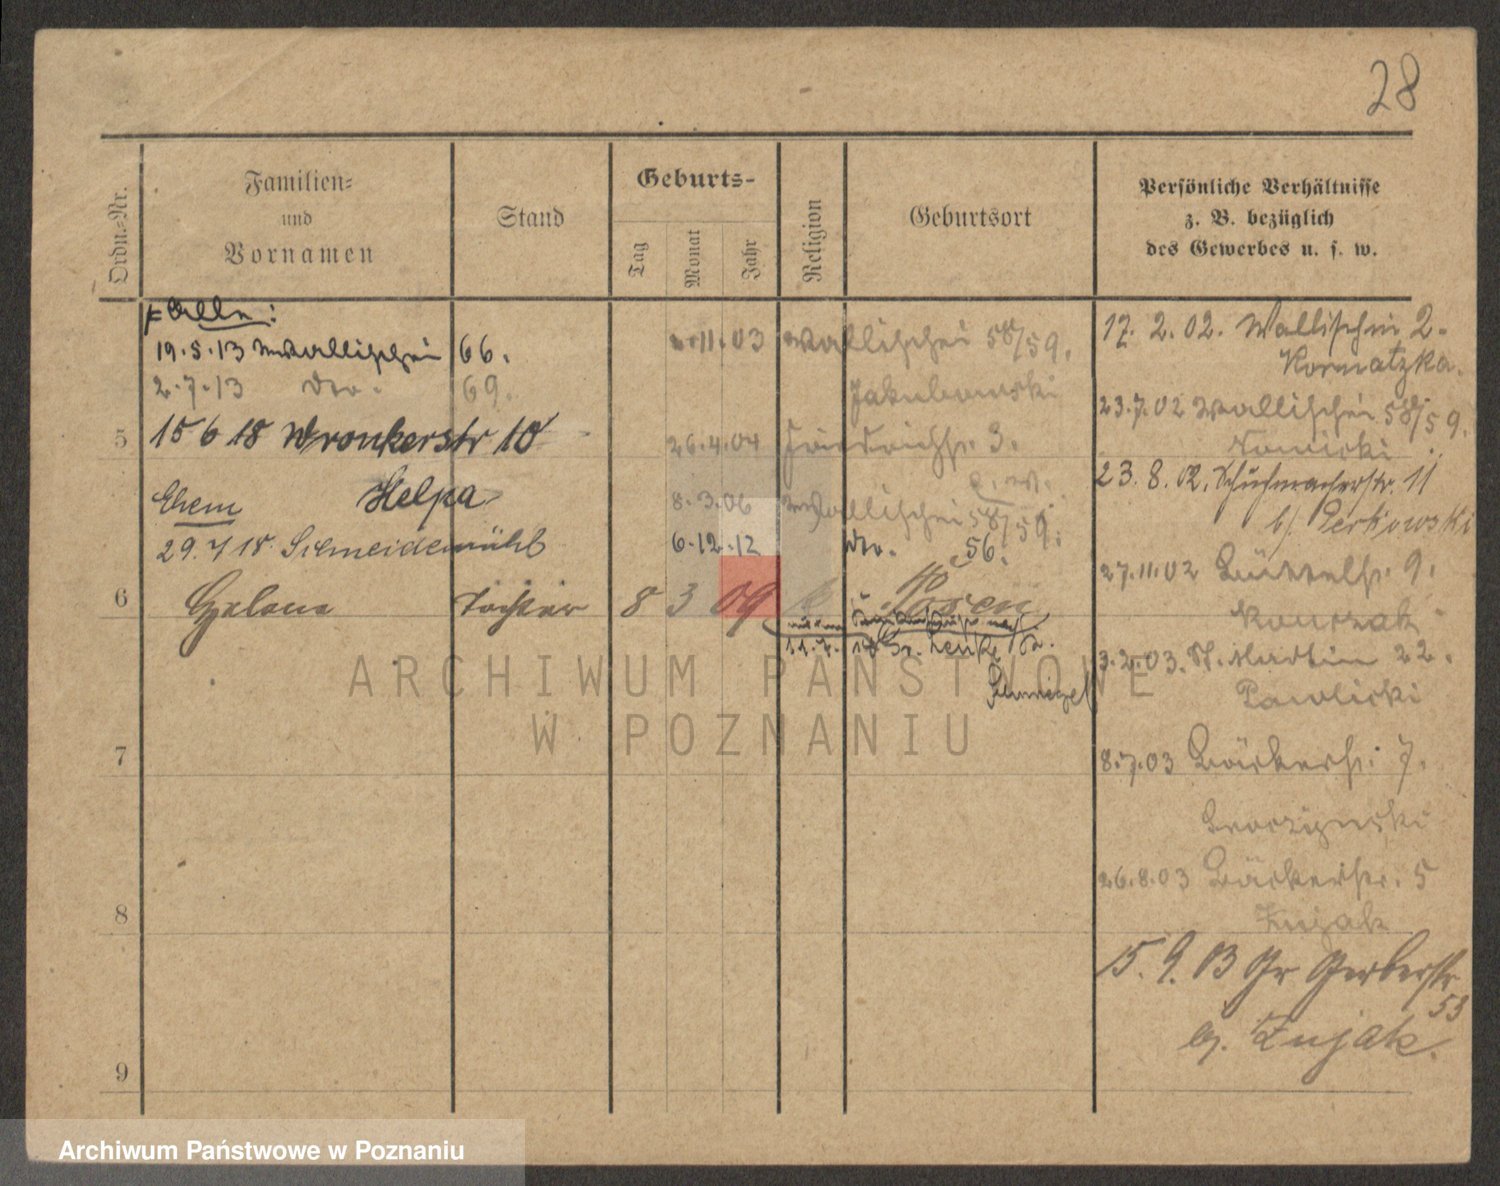 28
Ordn.-Nr.
Familien-
und
Vornamen
Stand
Geburts-
Tag
Monat
Jahr
Religion
Geburtsort
Persönliche Verhältnisse
z. B. bezüglich
des Gewerbes u. s. w.
Alle:
19.5.13 Wallischei 66.
2.7.13 do. 69.
5
15 6 18 Wronkerstr 10
Ehem Helpa
29.7 18. Schneidemühl
6
Helena Tochter 8 3 09 k Posen
11.03 Wallischei 58/59.
Jakubowski
26.4.04 Friedrichstr. 3.
8.3.06 Wallischei 58/59.
6.12.12 do. 56.
Schmiegel
17. 2. 02. Wallischei 2.
Kornatzka.
23.7.02 Wallischei 58/59.
Nowicki
23. 8. 02. Schuhmacherstr. 11
b/. Perkowski
27.11.02 Büttelstr. 9.
3.2.03. St. Martin 22.
Pawlicki
8.7.03 Bäckerstr. 7.
26.8.03 Bäckerstr. 5
Kujak
15. 9. 03 Gr Gerberstr
53
b/. Kujak.
7
8
9
ARCHIWUM PAŃSTWOWE
W POZNANIU
Archiwum Państwowe w Poznaniu